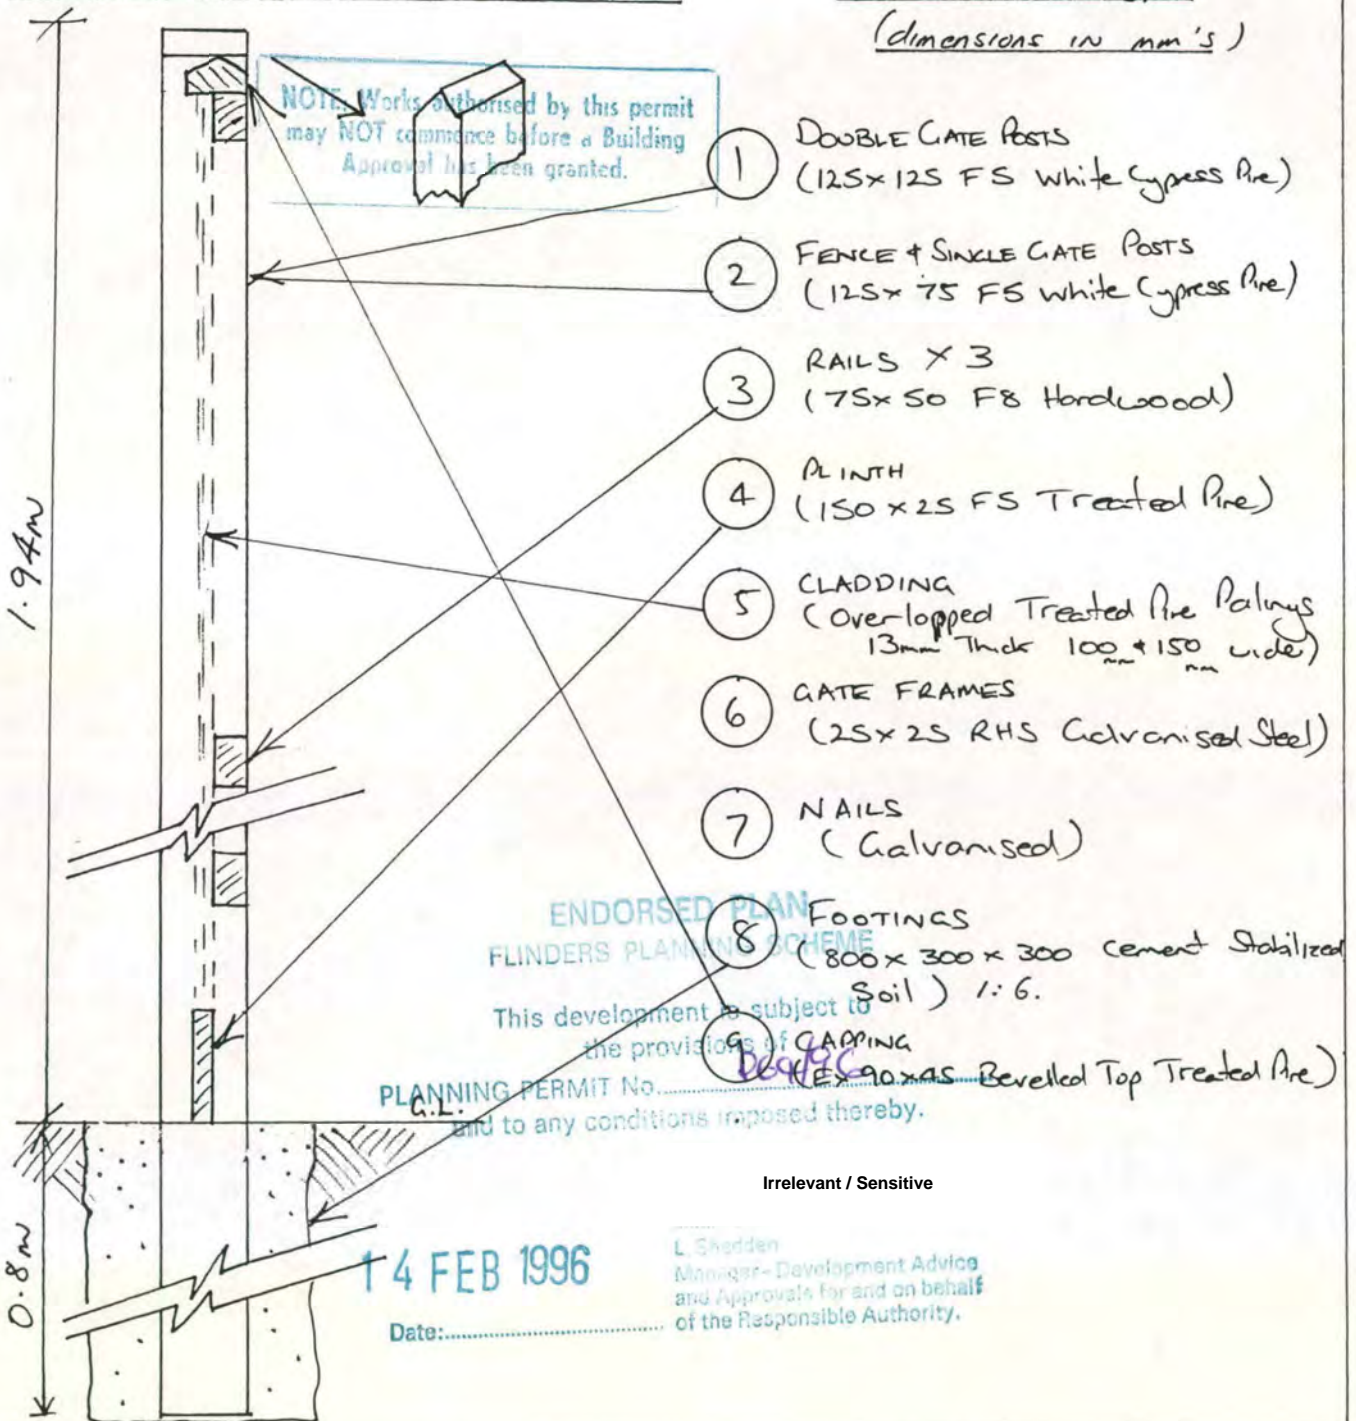 (dimensions IN mm's)
NOTE: Works authorised by this permit
may NOT commence before a Building
Approval has been granted.
1 DOUBLE GATE POSTS
(125x125 F5 White Cypress Pine)
2 FENCE & SINGLE GATE POSTS
(125x 75 F5 White Cypress Pine)
3 RAILS X 3
(75x50 F8 Hardwood)
4 PLINTH
(150 x 25 F5 Treated Pine)
5 CLADDING
(Overlapped Treated Pine Palings
13mm Thick 100mm & 150mm wide)
6 GATE FRAMES
(25x25 RHS Galvanised Steel)
7 NAILS
(Galvanised)
8 FOOTINGS
(800 x 300 x 300 Cement Stabilized
Soil) 1:6.
9 CAPPING
(Ex 90x45 Bevelled Top Treated Pine)
1.94m
0.8m
G.L.
ENDORSED PLAN
FLINDERS PLANNING SCHEME
This development is subject to
the provisions of
PLANNING PERMIT No.
and to any conditions imposed thereby.
Irrelevant / Sensitive
14 FEB 1996
Date:
L. Shedden
Manager - Development Advice
and Approvals for and on behalf
of the Responsible Authority.